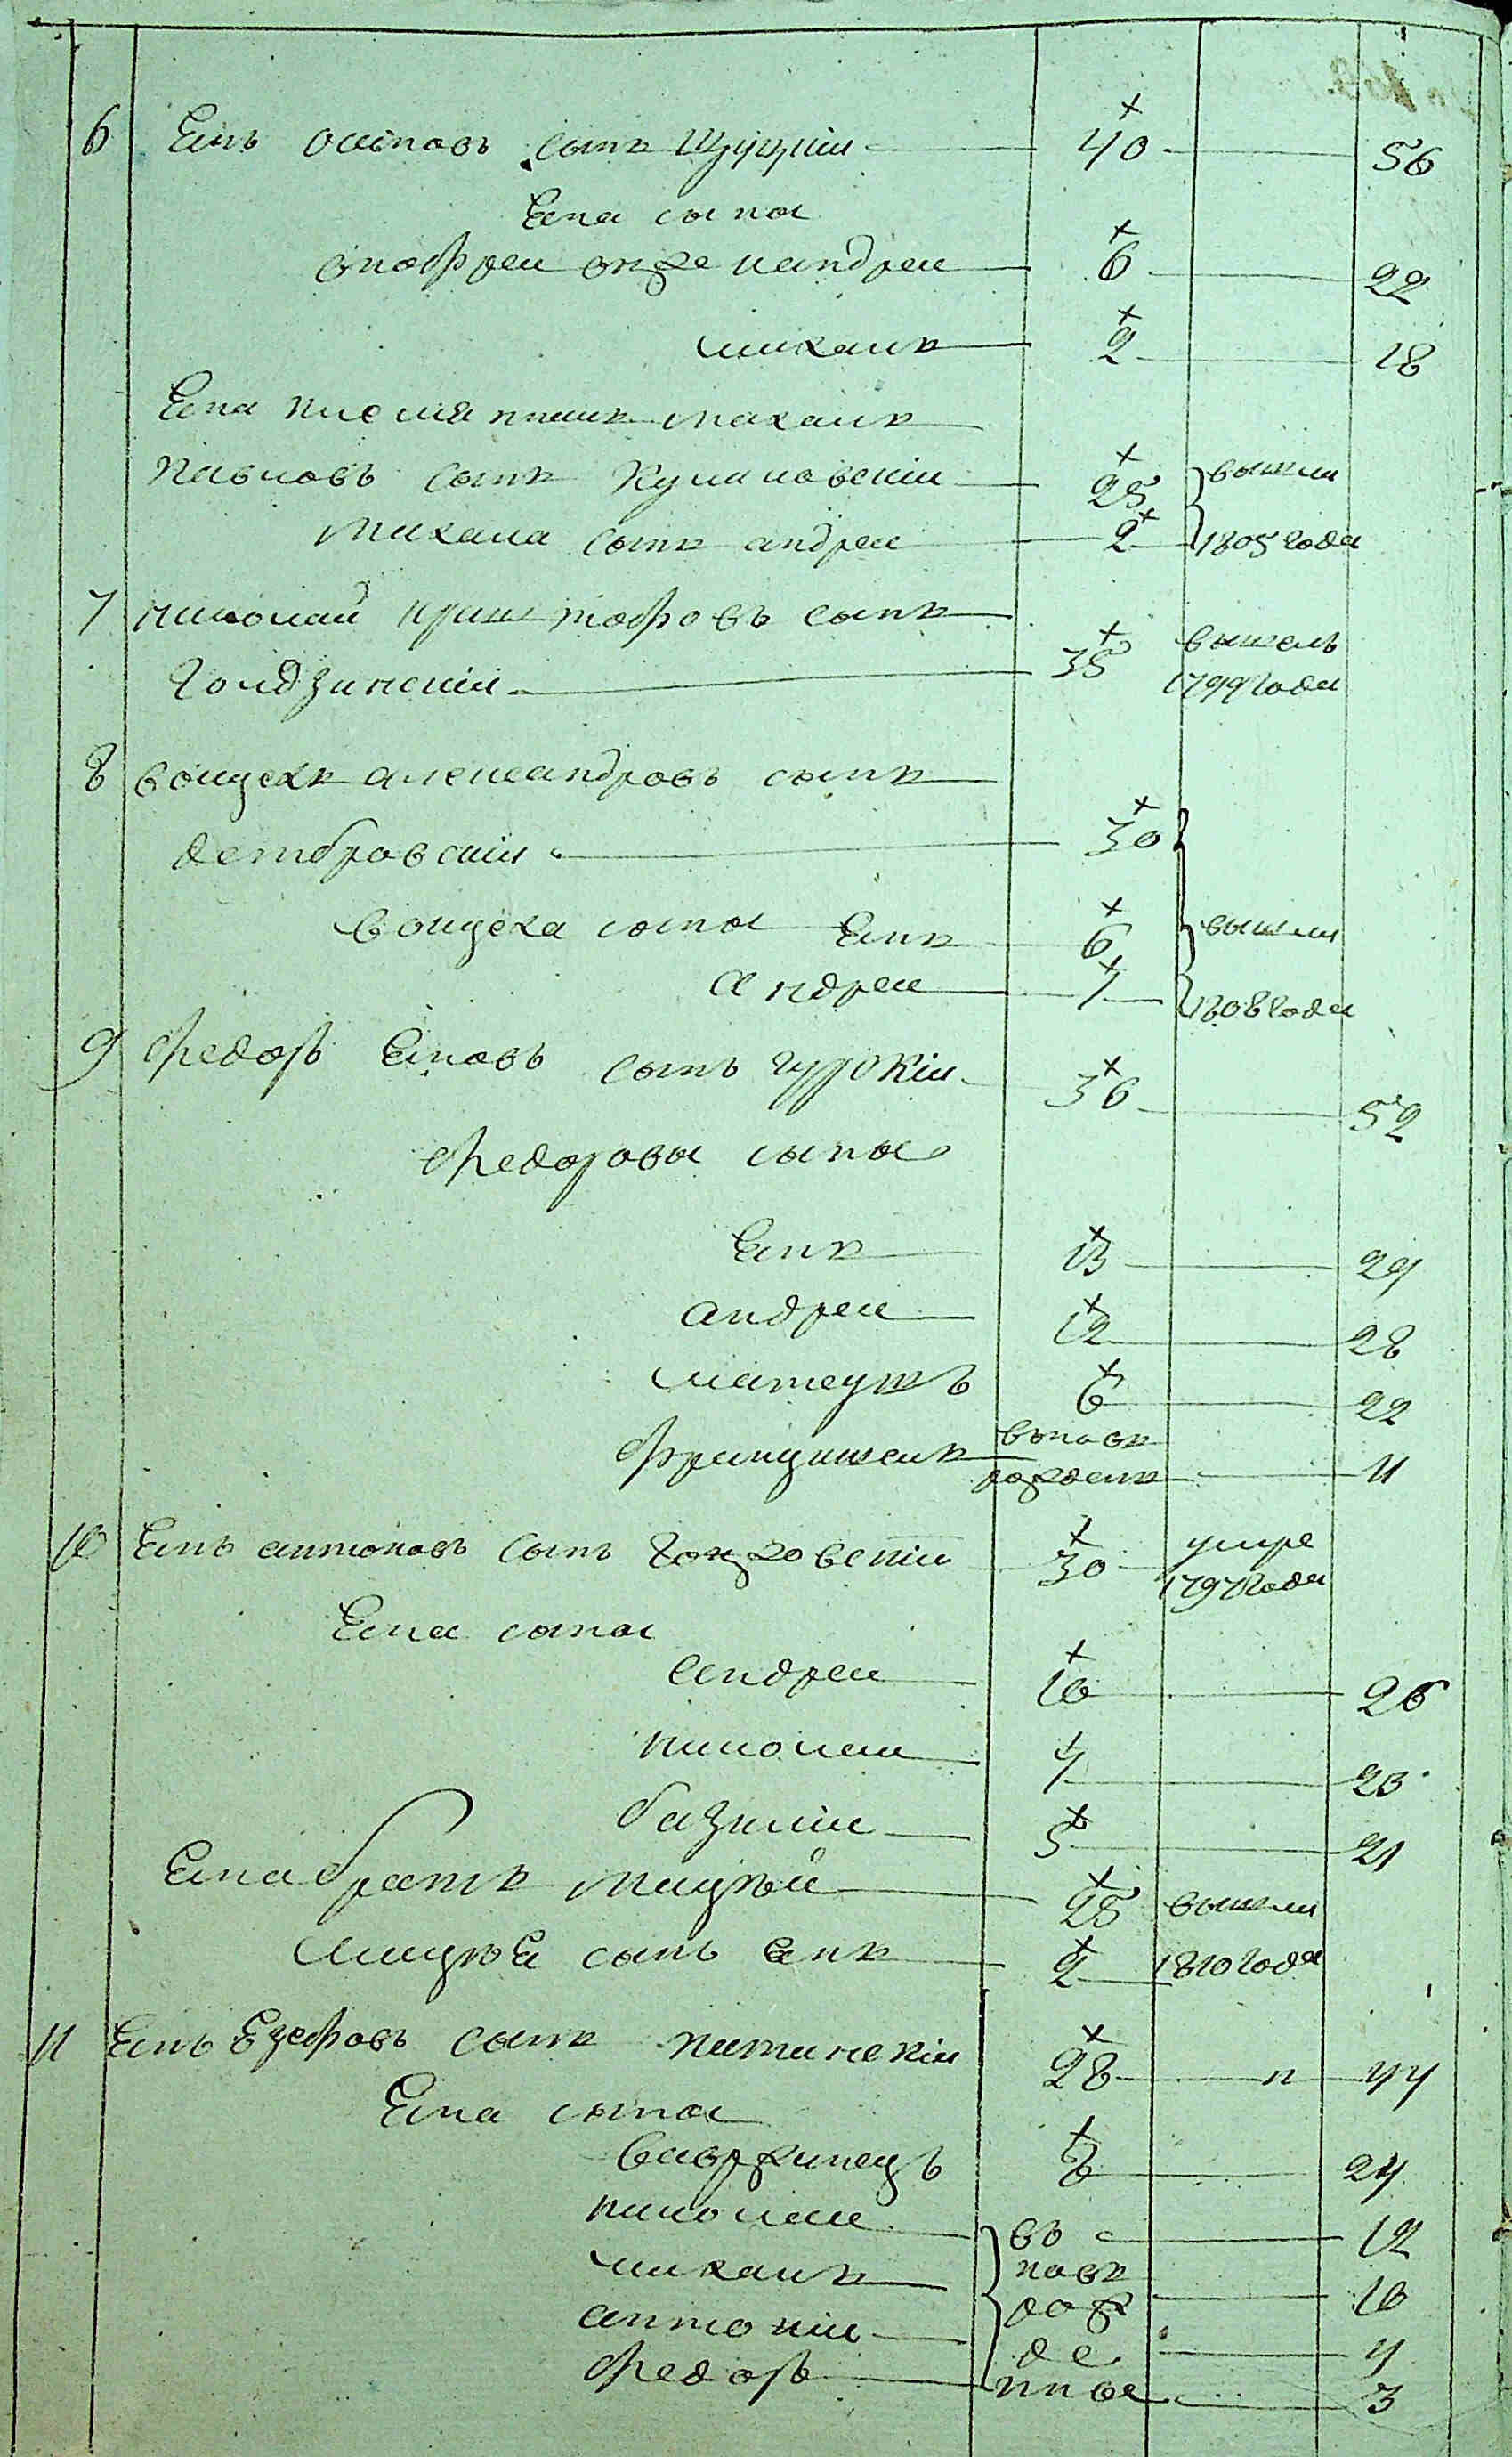 6 Янъ осиповъ сынъ Щуцкiи 40 56
Яна сыны
Онофреи онже Кандреи 6 22
михаилъ 2 18
Яна племянникъ михаилъ
Павловъ сынъ Куликовскiи 25 вышли
михаила сынъ андреи 2 1805 года
7 николай криштофовъ сынъ
Голдзинскiи 35 вышелъ 1799 года
8 воицехъ александровъ сынъ
дембровскiи 30
воицеха сыны Янъ 6 вышли
андреи 7 1808 года
9 федоръ Яновъ сынъ гурскiи 36 52
федоровы сыны
Янъ 13 29
андреи 12 28
матеушъ 6 22
францишекъ вновь рожденъ 11
10 Янъ антоновъ сынъ умре
30 1797 года
Яна сыны
андреи 10 26
николаи 7 23
базилiи 5 21
Яна братъ мацѣй 25 вышли
мацѣя сынъ Янъ 2 1810 года
11 Янъ Езефовъ сынъ 28 п 44
Яна сыны
вавржинецъ 8 24
николаи въ 12
михаилъ новъ 10
антонiи рож де 4
федоръ нные 3